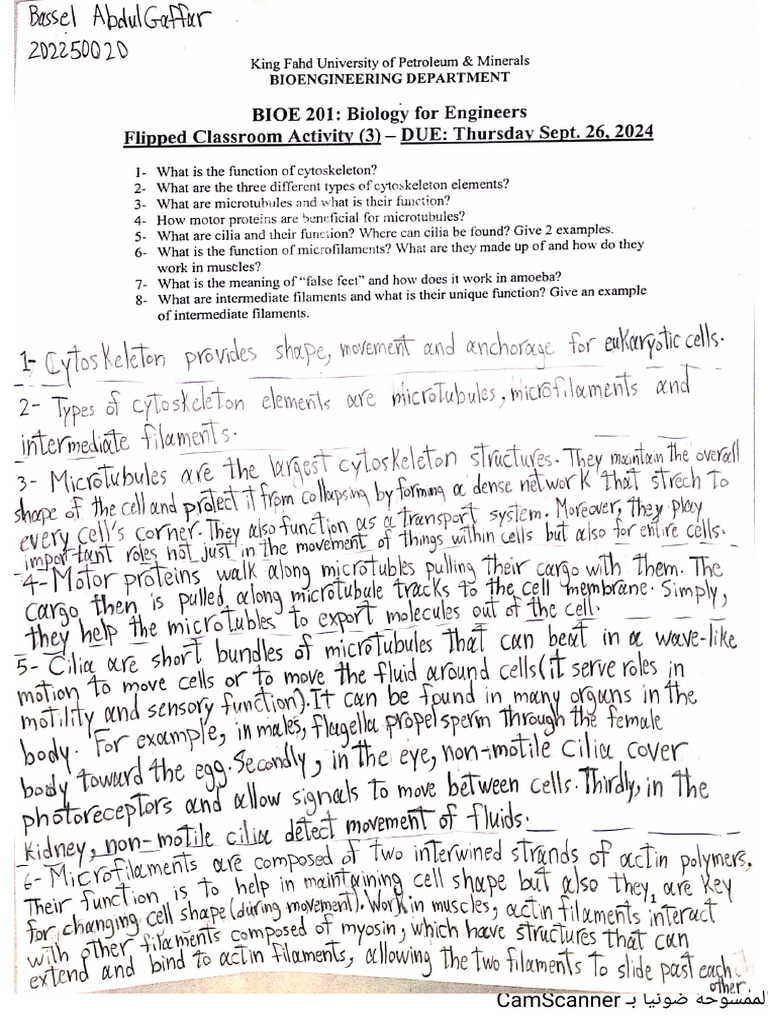 Bassel AbdulGaffar
202250020
King Fahd University of Petroleum & Minerals
BIOENGINEERING DEPARTMENT
BIOE 201: Biology for Engineers
Flipped Classroom Activity (3) – DUE: Thursday Sept. 26, 2024
1- What is the function of cytoskeleton?
2- What are the three different types of cytoskeleton elements?
3- What are microtubules and what is their function?
4- How motor proteins are beneficial for microtubules?
5- What are cilia and their function? Where can cilia be found? Give 2 examples.
6- What is the function of microfilaments? What are they made up of and how do they
work in muscles?
7- What is the meaning of “false feet” and how does it work in amoeba?
8- What are intermediate filaments and what is their unique function? Give an example
of intermediate filaments.
1- Cytoskeleton provides shape, movement and anchorage for eukaryotic cells.
2- Types of cytoskeleton elements are microtubules, microfilaments and
intermediate filaments.
3- Microtubules are the largest cytoskeleton structures. They maintain the overall
shape of the cell and protect it from collapsing by forming a dense network that strech to
every cell's corner. They also function as a transport system. Moreover, they play
important roles not just in the movement of things within cells but also for entire cells.
4- Motor proteins walk along microtubles pulling their cargo with them. The
cargo then is pulled along microtubule tracks to the cell membrane. Simply,
they help the microtubles to export molecules out of the cell.
5- Cilia are short bundles of microtubules that can beat in a wave-like
motion to move cells or to move the fluid around cells (it serve roles in
motility and sensory function). It can be found in many organs in the
body. For example, in males, flagella propel sperm through the female
body toward the egg. Secondly, in the eye, non-motile cilia cover
photoreceptors and allow signals to move between cells. Thirdly, in the
kidney, non-motile cilia detect movement of fluids.
6- Microfilaments are composed of two interwined strands of actin polymers,
Their function is to help in maintaining cell shape but also they, are key
for changing cell shape (during movement). Work in muscles, actin filaments interact
with other filaments composed of myosin, which have structures that can
extend and bind to actin filaments, allowing the two filaments to slide past each
other.
الممسوحة ضوئيا بـ CamScanner